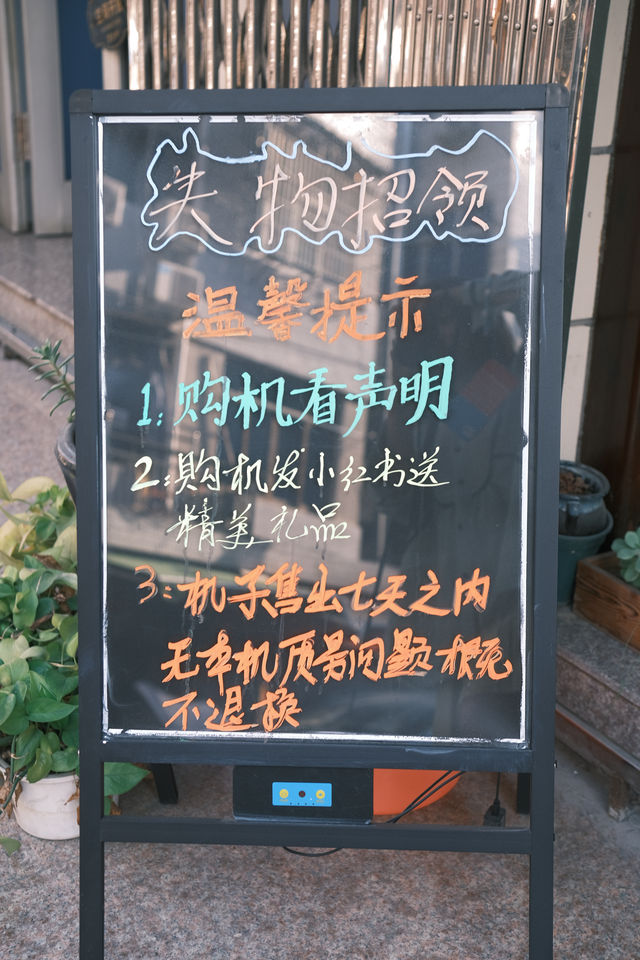 失物招领
温馨提示
1:购机看声明
2:购机发小红书送
精美礼品
3:机子售出七天之内
无本机质量问题概
不退换